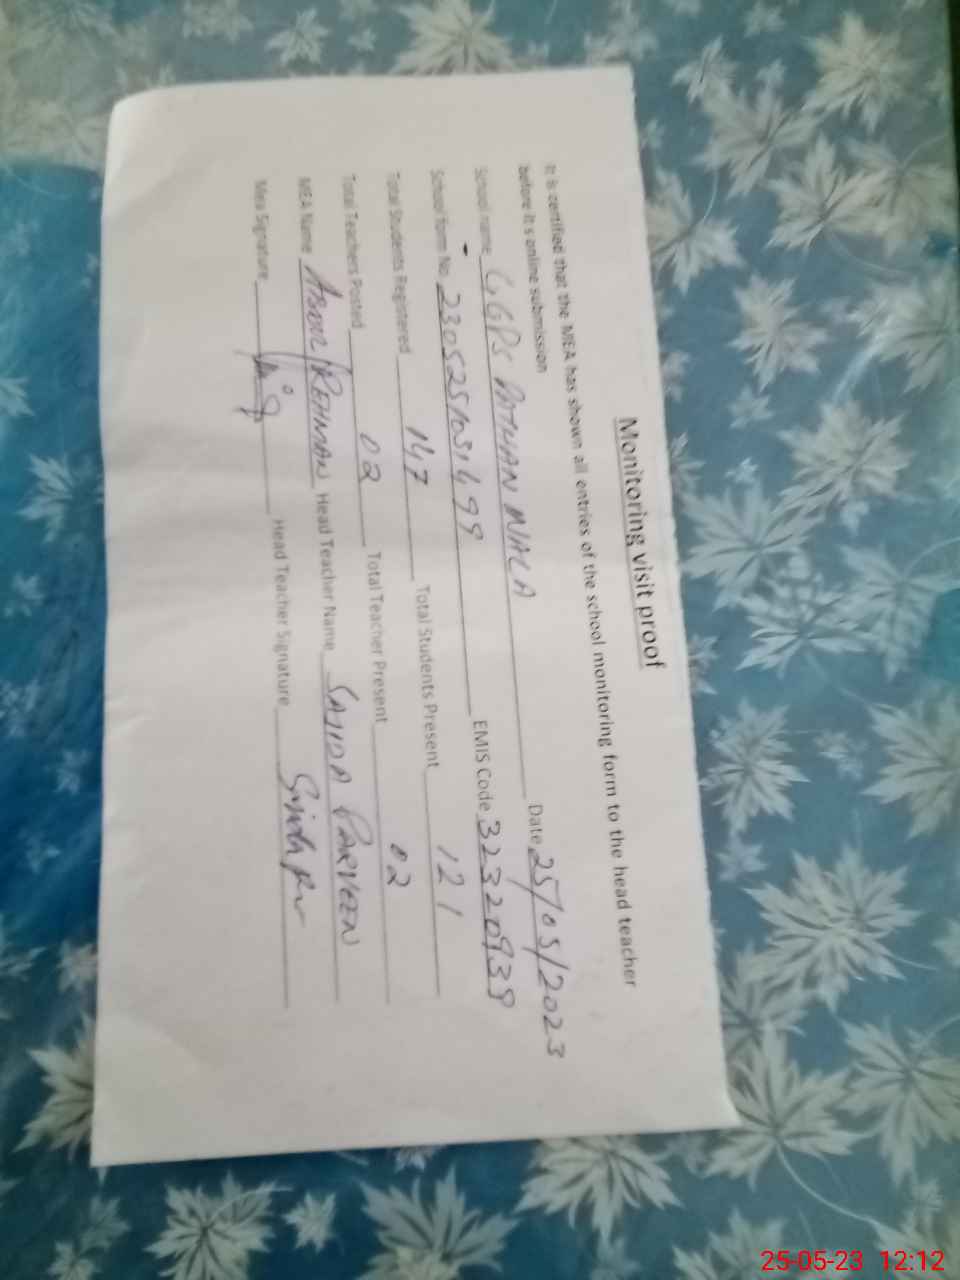 Monitoring visit proof
It is certified that the MEA has shown all entries of the school monitoring form to the head teacher
before it s online submission
School name GGPS PATHAN WALA Date 25/05/2023
School form No 2305251031499 EMIS Code 32320939
Total Students Registered 147 Total Students Present 121
Total Teachers Posted 02 Total Teacher Present 02
MEA Name ABDUL REHMAN Head Teacher Name SAJIDA PARVEEN
Mea Signature Head Teacher Signature
25-05-23 12:12